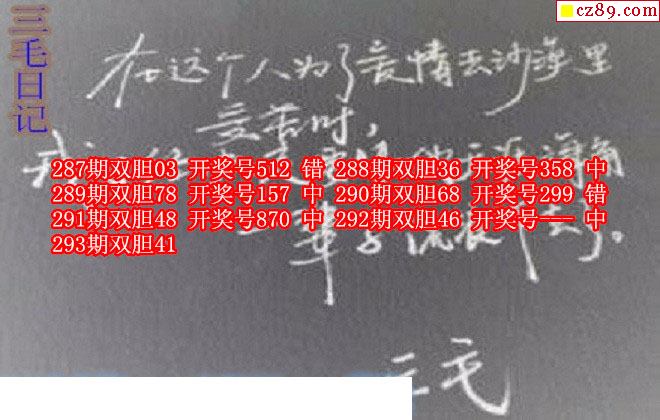 cz89.com
三毛日记
在这个人为了爱情去沙漠里
受苦时，
287期双胆03 开奖号512 错 288期双胆36 开奖号358 中
289期双胆78 开奖号157 中 290期双胆68 开奖号299 错
291期双胆48 开奖号870 中 292期双胆46 开奖号--- 中
293期双胆41
三毛